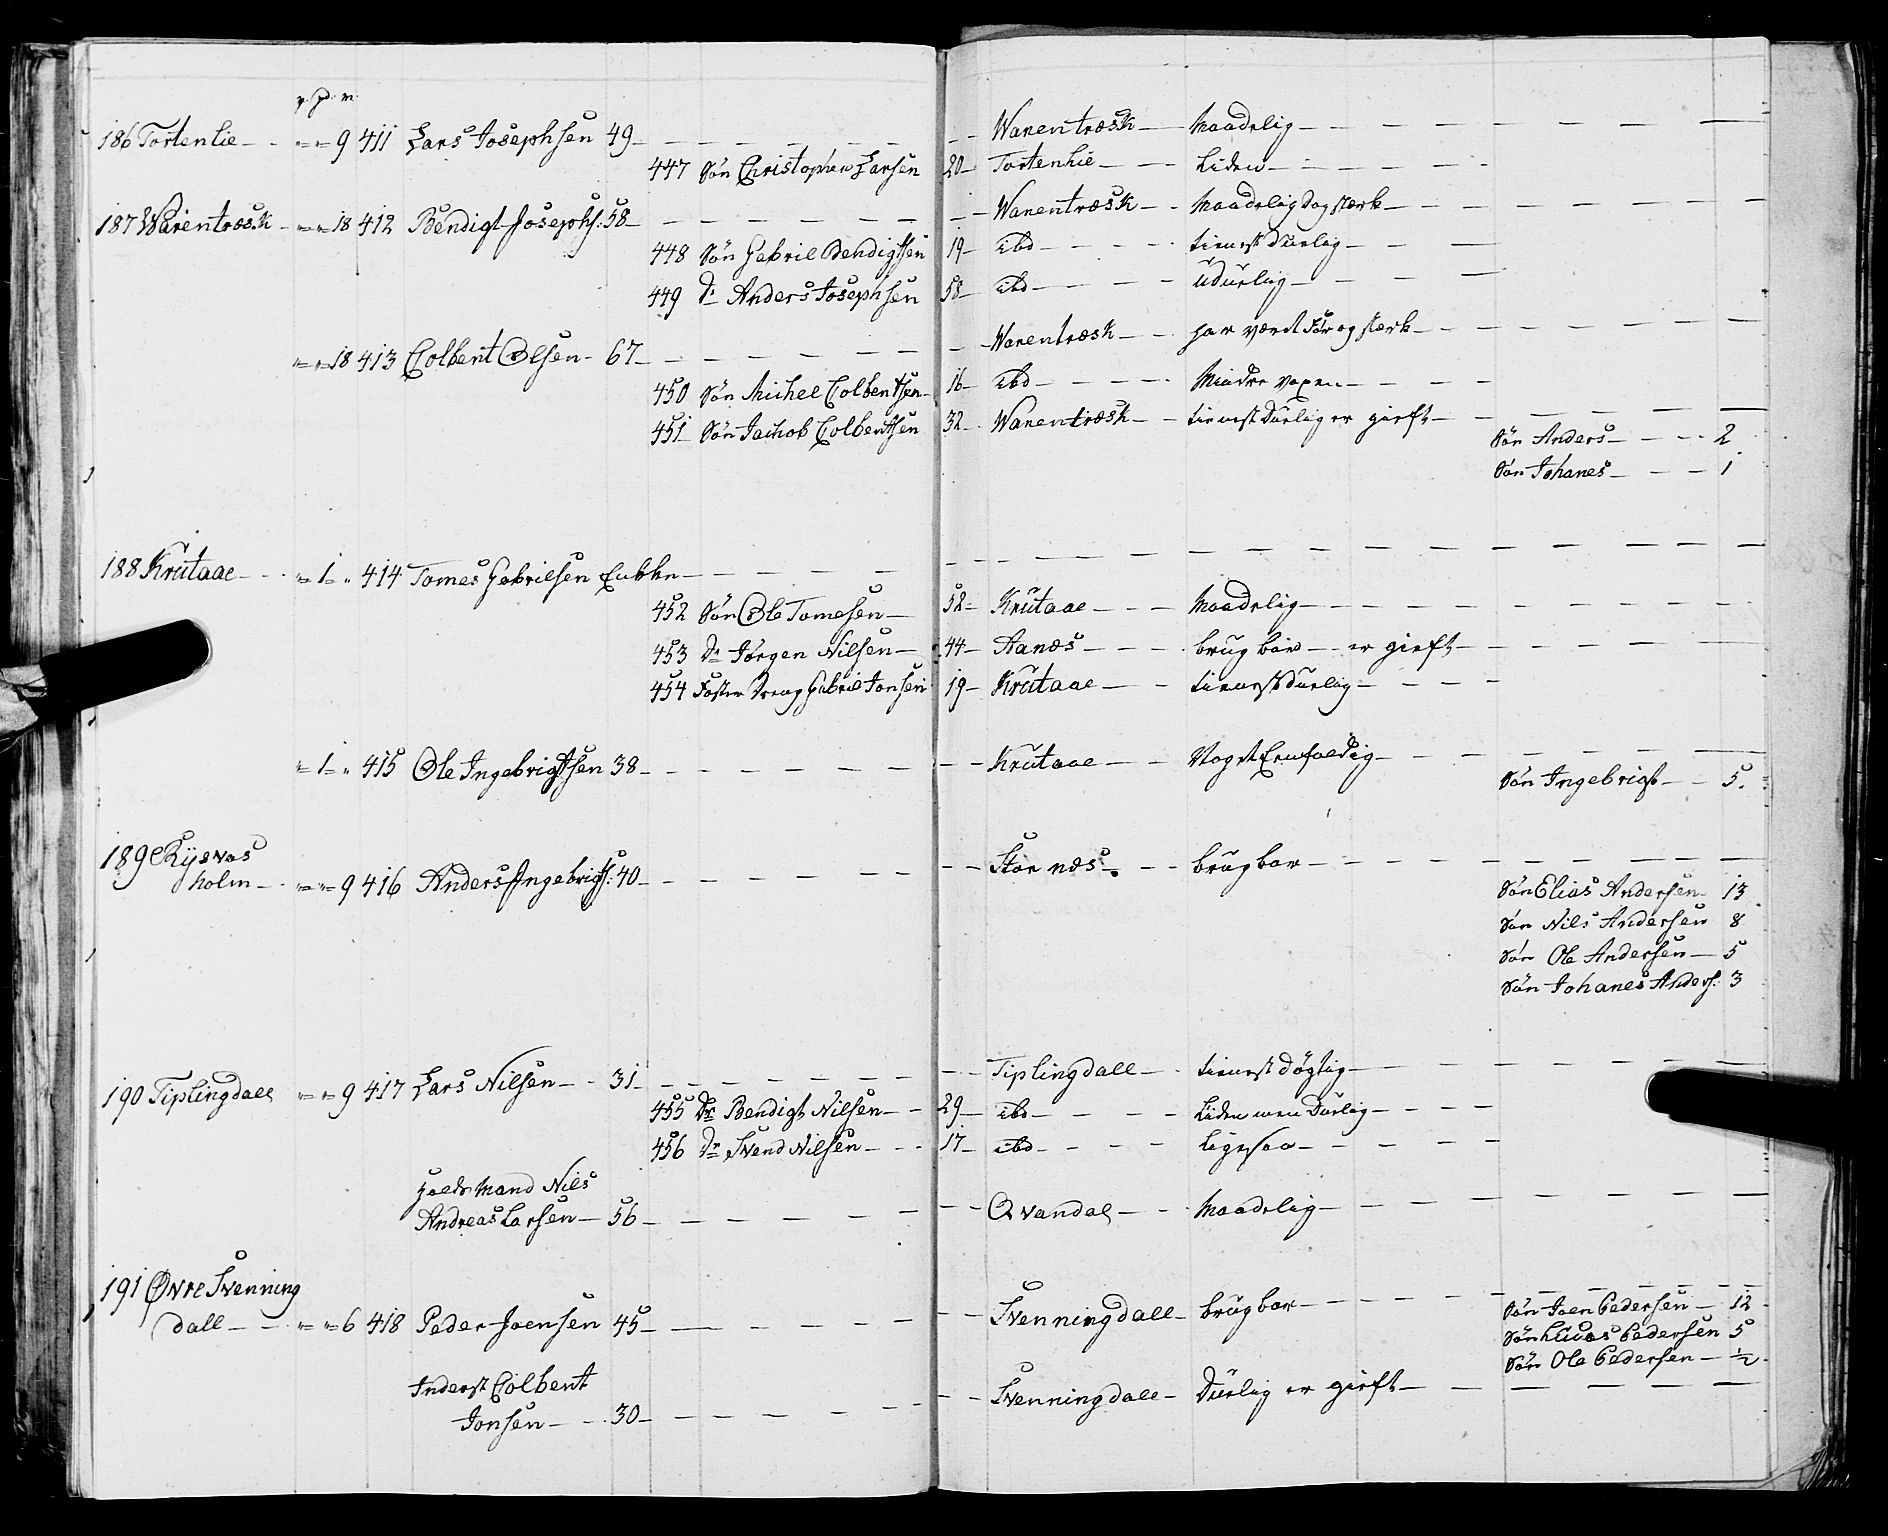 v. pd. m.
186 Tortenlie - - " " 9 411 Lars Josephsen 49 - Warentræsk - Maadelig -
447 Søn Christopher Larsen 20 - Tortenlie - - Liden -
187 Warentræsk - " " 18 412 Bendigt Josephs: 58 - Warentræsk - - Maadelig dog stærk -
448 Søn Gabriel Bendigtsen 19 - ibd - - tienestdurlig -
449 Dr Anders Josephsen 58 - ibd - - udurlig -
" " 18 413 Colbent Olsen - 67 - Warentræsk - - har været før og stærk -
450 Søn Michel Colbentsen - 16 - ibd - - Mindre voxen -
451 Søn Jachob Colbentsen 32 - Warentræsk - - tienestdurlig er gieft -
Søn Anders - - - 2
Søn Johanes - - - 1
188 Krutaae - - " 1 " 414 Tomes Gabrielsen Enkke -
452 Søn Ole Tomesen - 52 - Krutaae - - - Maadelig -
453 Dr Jørgen Nilsen - 44 - Aanæs - - - brugbar - - er gieft -
454 Foster Dreng Gabriel Jonsen 19 - Krutaae - - tienestdurlig -
" 1 " 415 Ole Ingebrigtsen 38 - Krutaae - - Noget Enfoldig -
Søn Ingebrigt - - 5.
189 Rysvas
holm - " " 9 416 Anders Ingebrigts: 40 - Stornæs - - brugbar -
Søn Elias Andersen - 13
Søn Nils Andersen 8
Søn Ole Andersen - 5
Søn Johanes Anders: 3
190 Tiplingdall " " 9 417 Lars Nilsen - - 31 - Tiplingdall - - tienestdøgtig -
455 Dr Bendigt Nilsen - - 29 - ibd - - Liden men Durlig -
456 Dr Svend Nilsen - - 17 - ibd - - Ligesaa -
Nils
Andreas Larsen - 56 - Qvandal - - Maadelig -
191 Øvre Svenning
dall - - " " 6 418 Peder Joensen 45 - Svenningdall - brugbar -
Søn Joen Pedersen - 12
Søn Lucas Pedersen 5
Søn Ole Pedersen - 1/2
Inderst Colbent
Jonsen - - 30 - Svenningdall - Durlig er gieft -